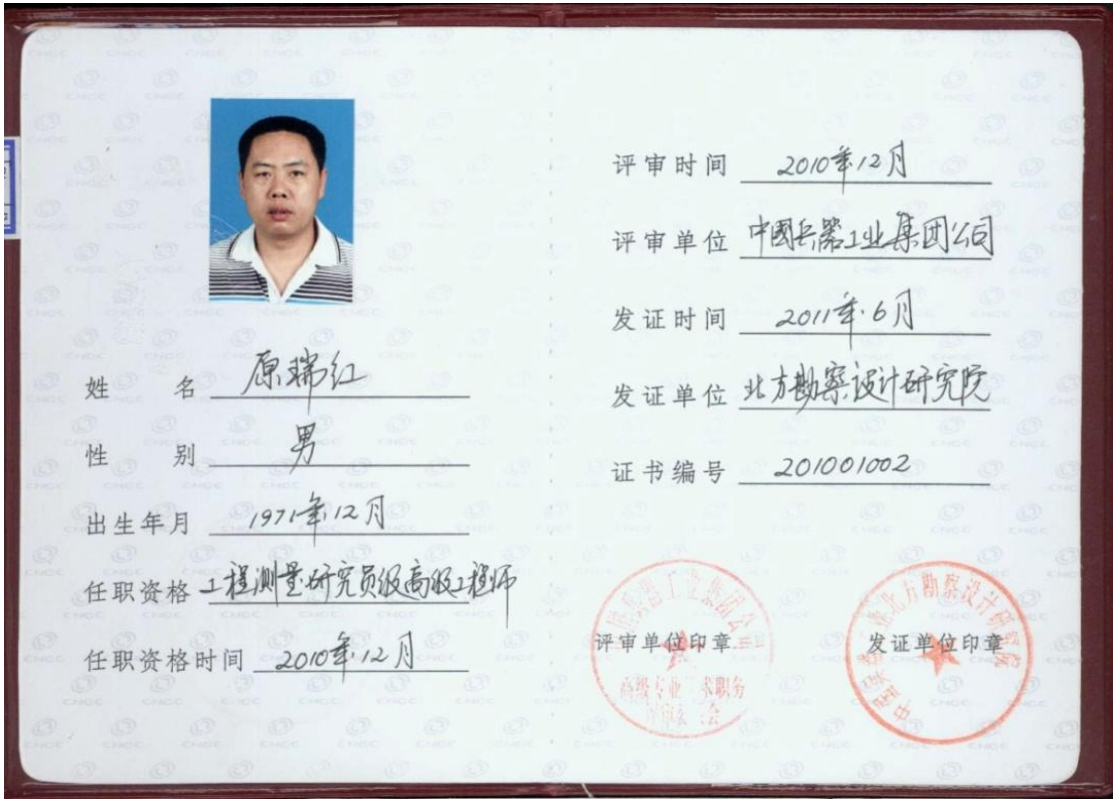 姓 名 原瑞红
性 别 男
出生年月 1971年12月
任职资格 工程测量研究员级高级工程师
任职资格时间 2010年12月
评审时间 2010年12月
评审单位 中國兵器工业集团公司
发证时间 2011年6月
发证单位 北方勘察设计研究院
证书编号 201001002
评审单位印章
发证单位印章
CNGC